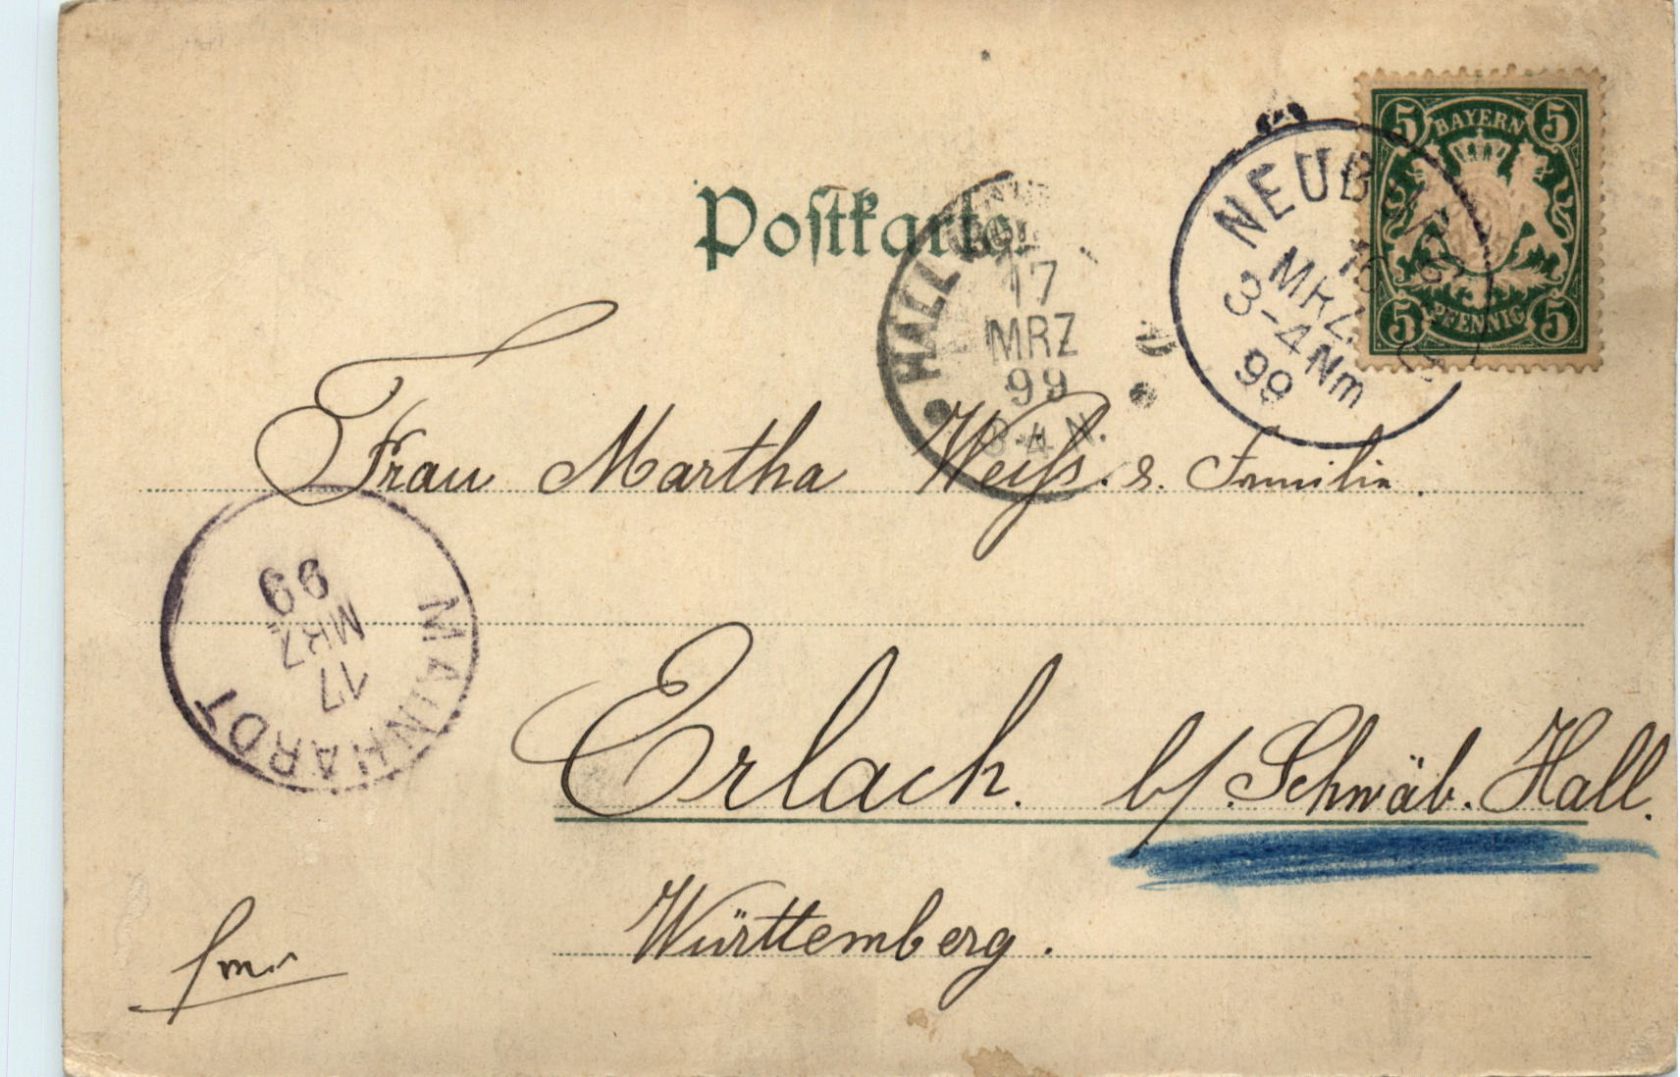 5 BAYERN 5
5 PFENNIG 5
Postkarte.
NEUB
MRZ.
3-4 Nm
99
HALL
17
MRZ
99
3-4 N.
Frau Martha Weiß. & Familie.
MAINHARDT
17
MRZ
99
Erlach. b/. Schwäb. Hall.
Württemberg.